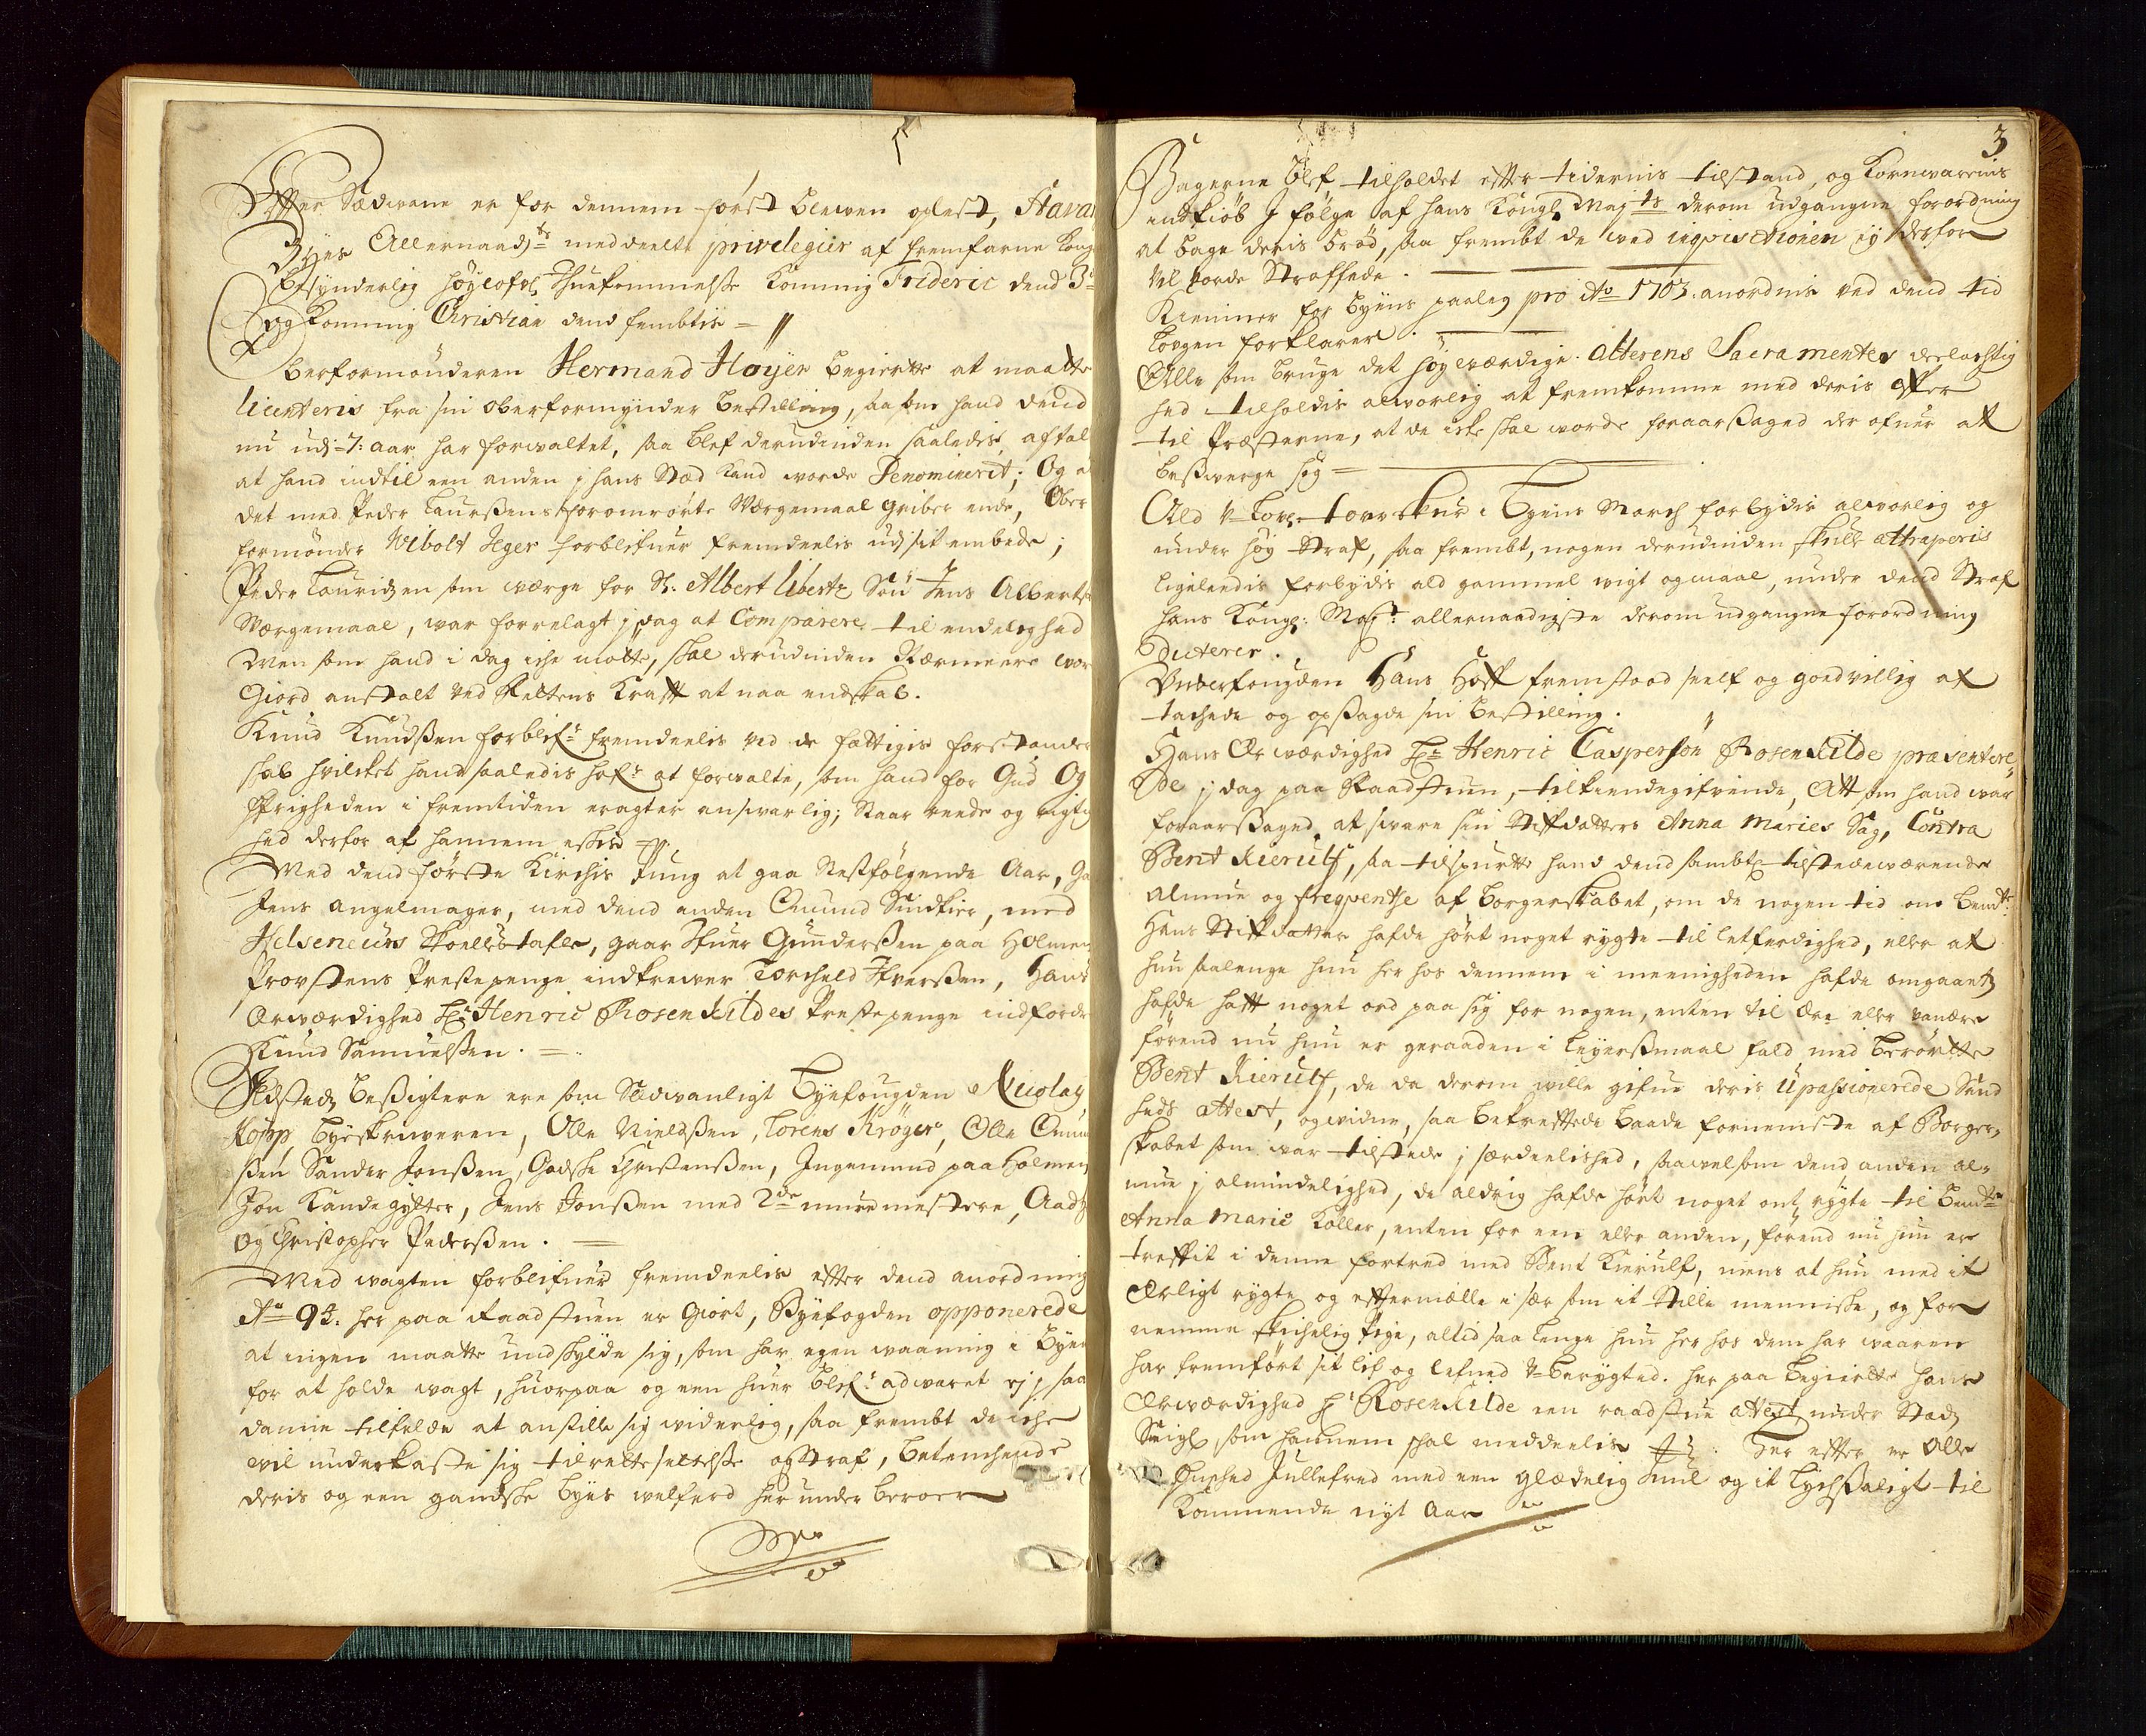 Efter Sædwane er for dennem först blewen oplest, Stavan
Byes Allernaadste meddeelte privilegier af fremfarne Kong
besynderlig höyloflig Ihuekommelsse Konning Frideric dend 3die
og Konning Christian dend fembtis =
Oberformönderen Hermand Høyer begierte at maatte
licenteris fra sin oberformynder bestilling, saasom hand dend
nu udj 7: aar har forwaltet, saa blef derudinden saaledis aftal
at hand indtil een anden j hans Sted kand worde Denomineret; Og
det med Peder Laurssens foromrörte Wærgemaal griber ende, Ober
formönder Wibolt Jeger forblifuer fremdeelis udj sit embede;
Peder Lauridzen som werge for Sl: Albert libertz Sön Jens Alberts
Wærgemaal, war forrelagt j dag at Comparere til endelighed
Men som hand i dag iche mötte, skal derudinden Nærmeere wor
Giord anstalt ved Rettens Krafft at naa endskab.
Knud Knudssen forblifr fremdeelis ved de fattigis forstander
skab hvilchet hand saaledis hafr at forwalte, som hand for Gud Og
Öfrigheden i fremtiden eragter answarlig; Staar reede og rigtig
hed derfor af hannem eskis
Med dend förste Kirchis Pung at gaa Nestfölgende Aar,
Jens angelmager, med dend anden Omund Snidkier, med
Helseneurs Skoells tafle, gaar Ifuer Gunderssen paa Holmen
Provstens Prestepenge indkrewer Torcheld Ifuerssen, Hans
Ærwærdighed Hr: Henric Rosenkildes Prestepenge indfordre
Knud Samuelssen.
Ildsteds besigtere ere som Sædwanligt Byefougden Nicolay
Kopp byeskriveren, Olle Nielssen, Lorens Kröger, Olle Omun
ssen Sander Jonssen, Gadske Christenssen, Ingemund paa Holmen
Jon Kandegyter, Jens Jonssen med 2de muurmestere, Aadz
og Christopher Pederssen.
Med wagten forblifuer fremdeelis efter dend anordning
Ao 94. her paa Raadstuen er giort, Byefogden opponerede
at ingen maatte undskylde sig, som har egen waaning i Byen
for at holde wagt, huorpaa og een huer blef adwaret ej j saa
danne tilfelde at anstille sig widerlig, saa frembt de iche
wil underkaste sig tilrettesettelsse og straf, betenchende
deris og een gandske byes welferd her under beroer
3
Bagerne blef tilholdet efter tidernis tilstand, og Kornwarenis
indkiöb I fölge af hans Kongl. Majts derom udgangne forordning
at bage deris bröd, saa frembt de ved inqvisitionen ej derfor
vil worde Straffede.
Kiemner for byens paaleg pro Ao 1703. anordnis ved dend tid
Lovgen forklarer.
Alle som bruge det höyværdige Alterens Sacramentes deelachtig
hed tilholdis alvorlig at fremkomme med deris offer
til Præsterne, at de iche skal worde foraarssaged der ofuer att
besswerge sig =
Ald V-Lovl. torvekiöb i Byens March forbydis alvorlig og
under höy Straf, saa frembt, nogen derudinden skulle attraperis
ligeleedis forbydis ald gammel wigt og maal, under dend Straf
hans Kongl: Maj:ts allernaadigste derom udgangne forordning
dicterer.
Underfougden Hans Hoff fremstoed sielf og goedvillig af
tachede og opssagde sin bestilling.
Hans Ærwærdighed Hr Henric Casperssön Rosenkilde præsentere
de j dag paa Raadstuen, tilkiendegifvende, Att som hand war
foraarssaged at sware sin Stifdatters Anna Maries Sag, Contra
Bent Kierulf, saa tilspurte hand dend sambtl. tilstedewærende
almue og freqventse af borgerskabet, om de nogen tid om bemte
hans Stifdatter hafde hört noget rygte til letferdighed, eller at
hun saalenge hun her hos dennem i meenigheden hafde omgaaets
hafde hafft noget ord paa sig for nogen, enten til Ære eller vanære
förend nu hun er geraaden i Leyerssmaal fald med berörte
Bent Kierulf, de da derom wille gifue deris Upassionerede Sand
heds Attest, og widne, saa bekreftede baade fornemste af Borger-
skabet som war tilstede j særdeelished, saawelsom dend anden al-
mue j almindelighed, de aldrig hafde hört noget ont rygte til bemte
Anna Marie Koller, enten for een eller anden, förend nu hun er
treffit i denne fortred med Bent Kierulf, mens at hun med it
Ærligt rygte og eftermælle i sær som it Stille menniske, og for
nemme skichelig Pige, altid saa lenge hun her hos dem har waaren
har fremfört sit lif og lefned V-berygted. her paa begierte hans
Ærwærdighed Hr Rosenkilde een raadstue attest under Stads
Seigl, som hannem skal meddeelis. Der efter er alle
önsked Jullefred med een glædelig Juul og it Lychssaligt til
Kommende nyt Aar